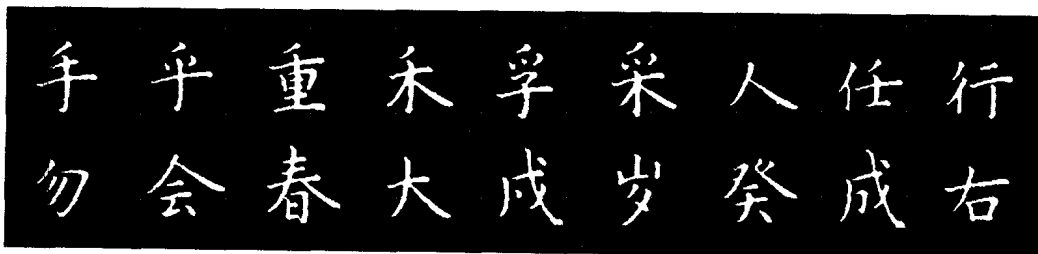 手乎重禾孚采人任行
勿会春大戍岁癸成右